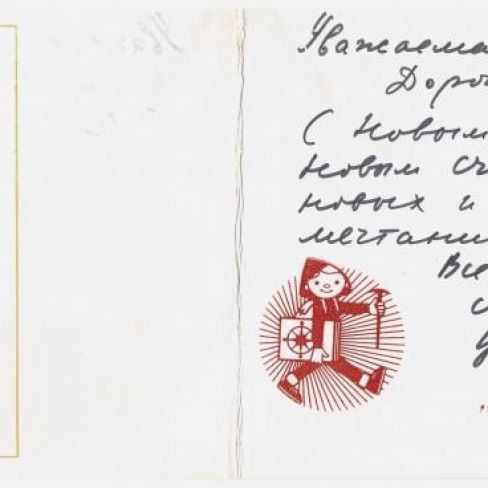 Уважаема
Доро
С Новым
Новым сч
новых и
мечтани
Все